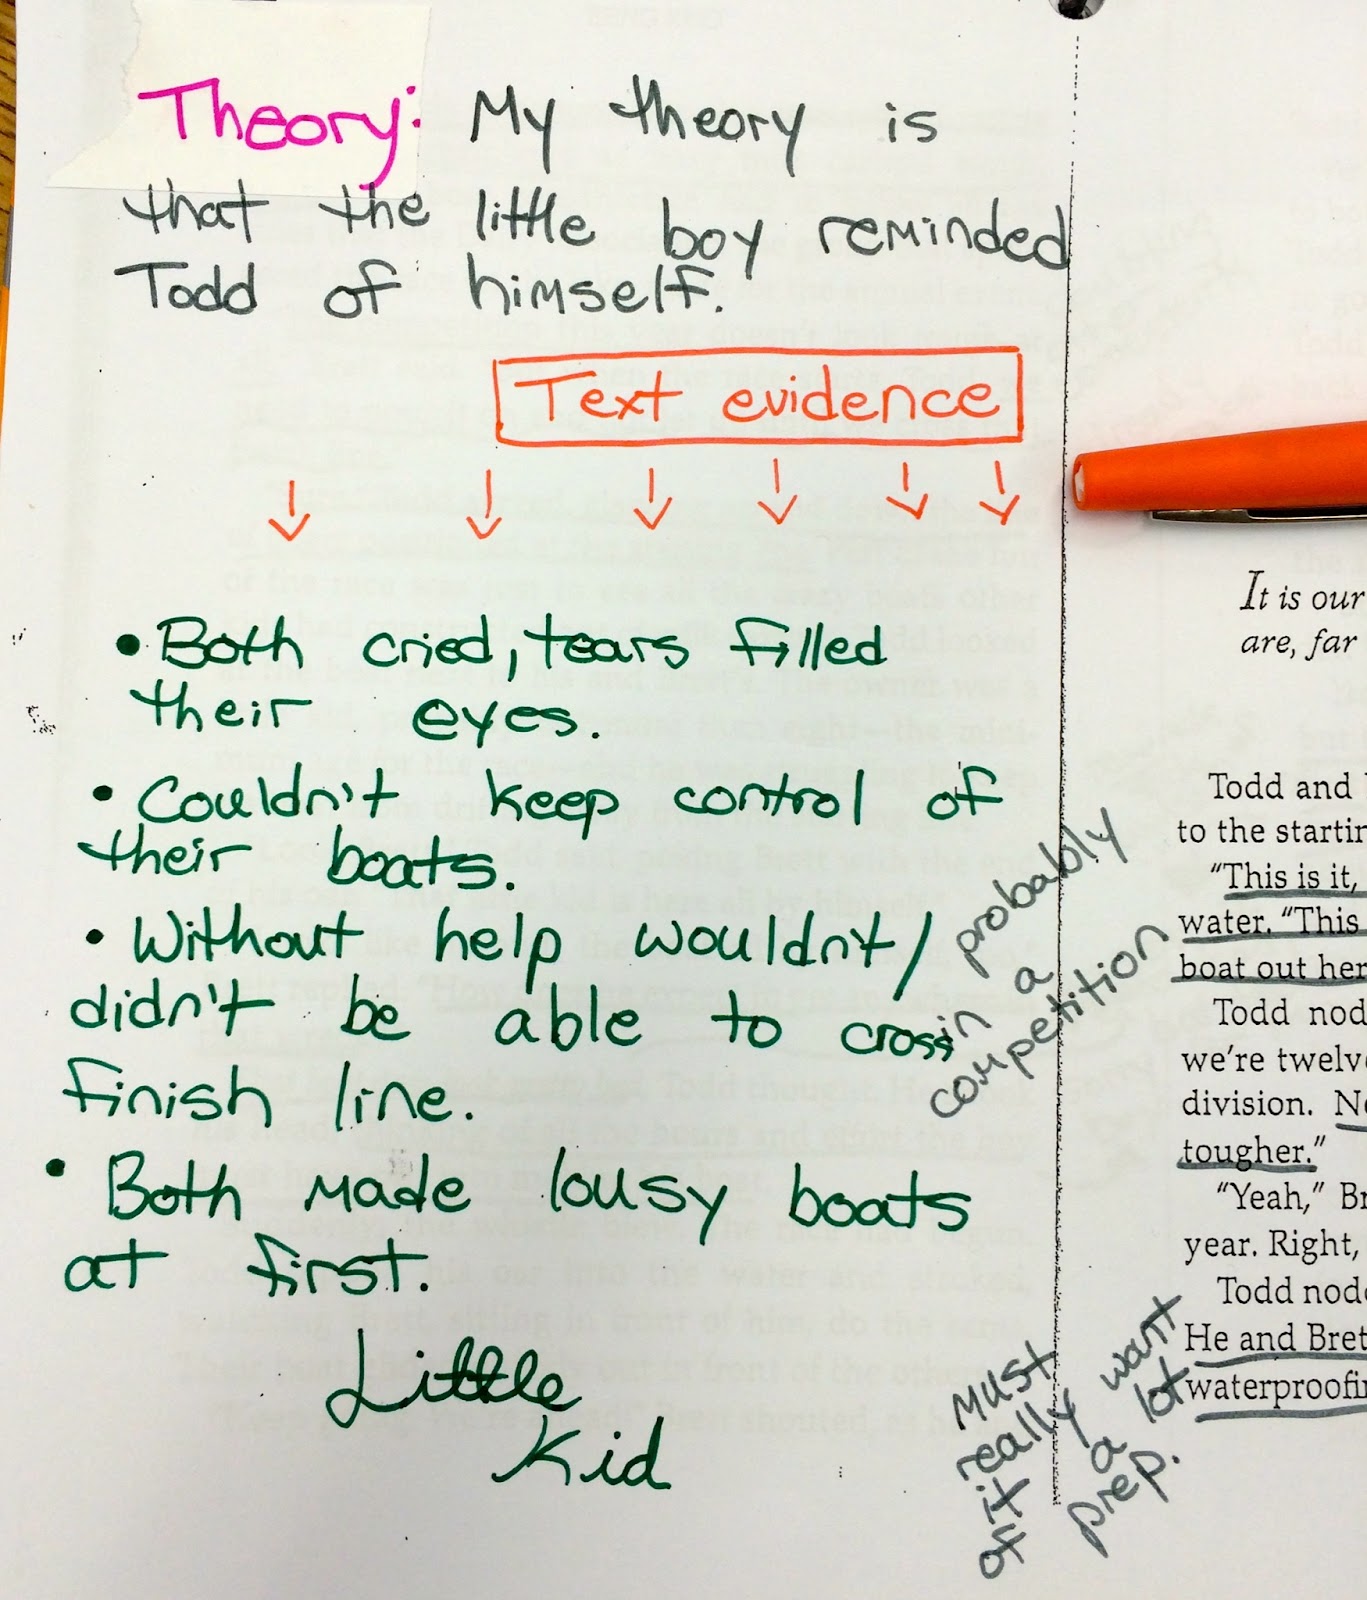 Theory: My theory is
that the little boy reminded
Todd of himself.
Text evidence
• Both cried, tears filled
their eyes.
• Couldn't keep control of
their boats.
• Without help wouldn't/
didn't be able to cross
finish line.
• Both made lousy boats
at first.
Little
Kid
probably
in a
competition
Must
really want
it a lot
of prep.
It is our
are, far
Todd and
to the startin
"This is it,
water. "This
boat out her
Todd nod
we're twelve
division. No
tougher."
"Yeah," Br
year. Right,
Todd nodd
He and Bret
waterproofin